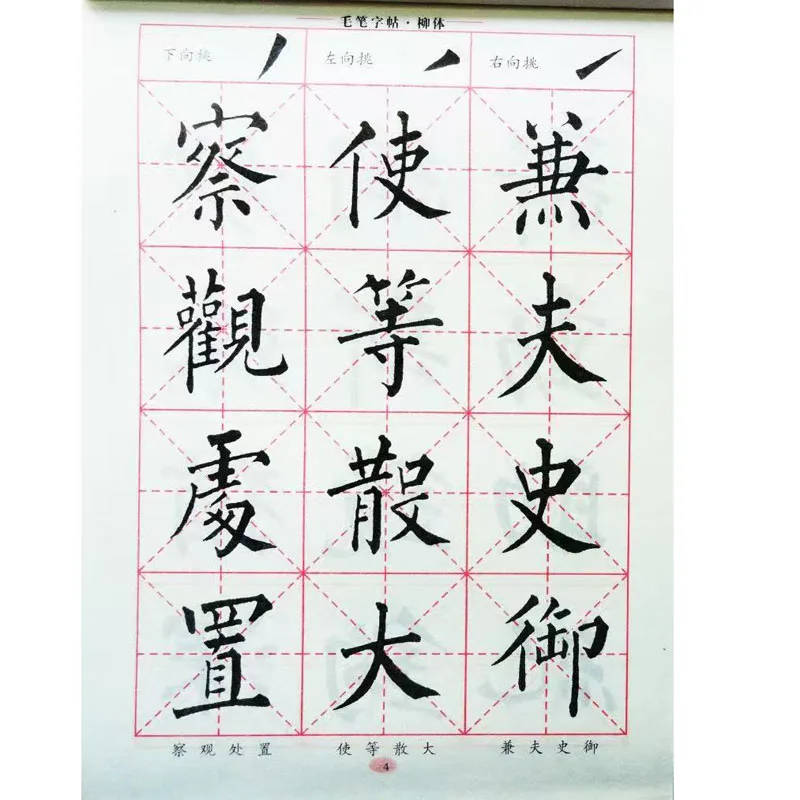 毛笔字帖·柳体
下向挑 左向挑 右向挑
察 使 兼
觀 等 夫
處 散 史
置 大 御
察观处置 使等散大 兼夫史御
4